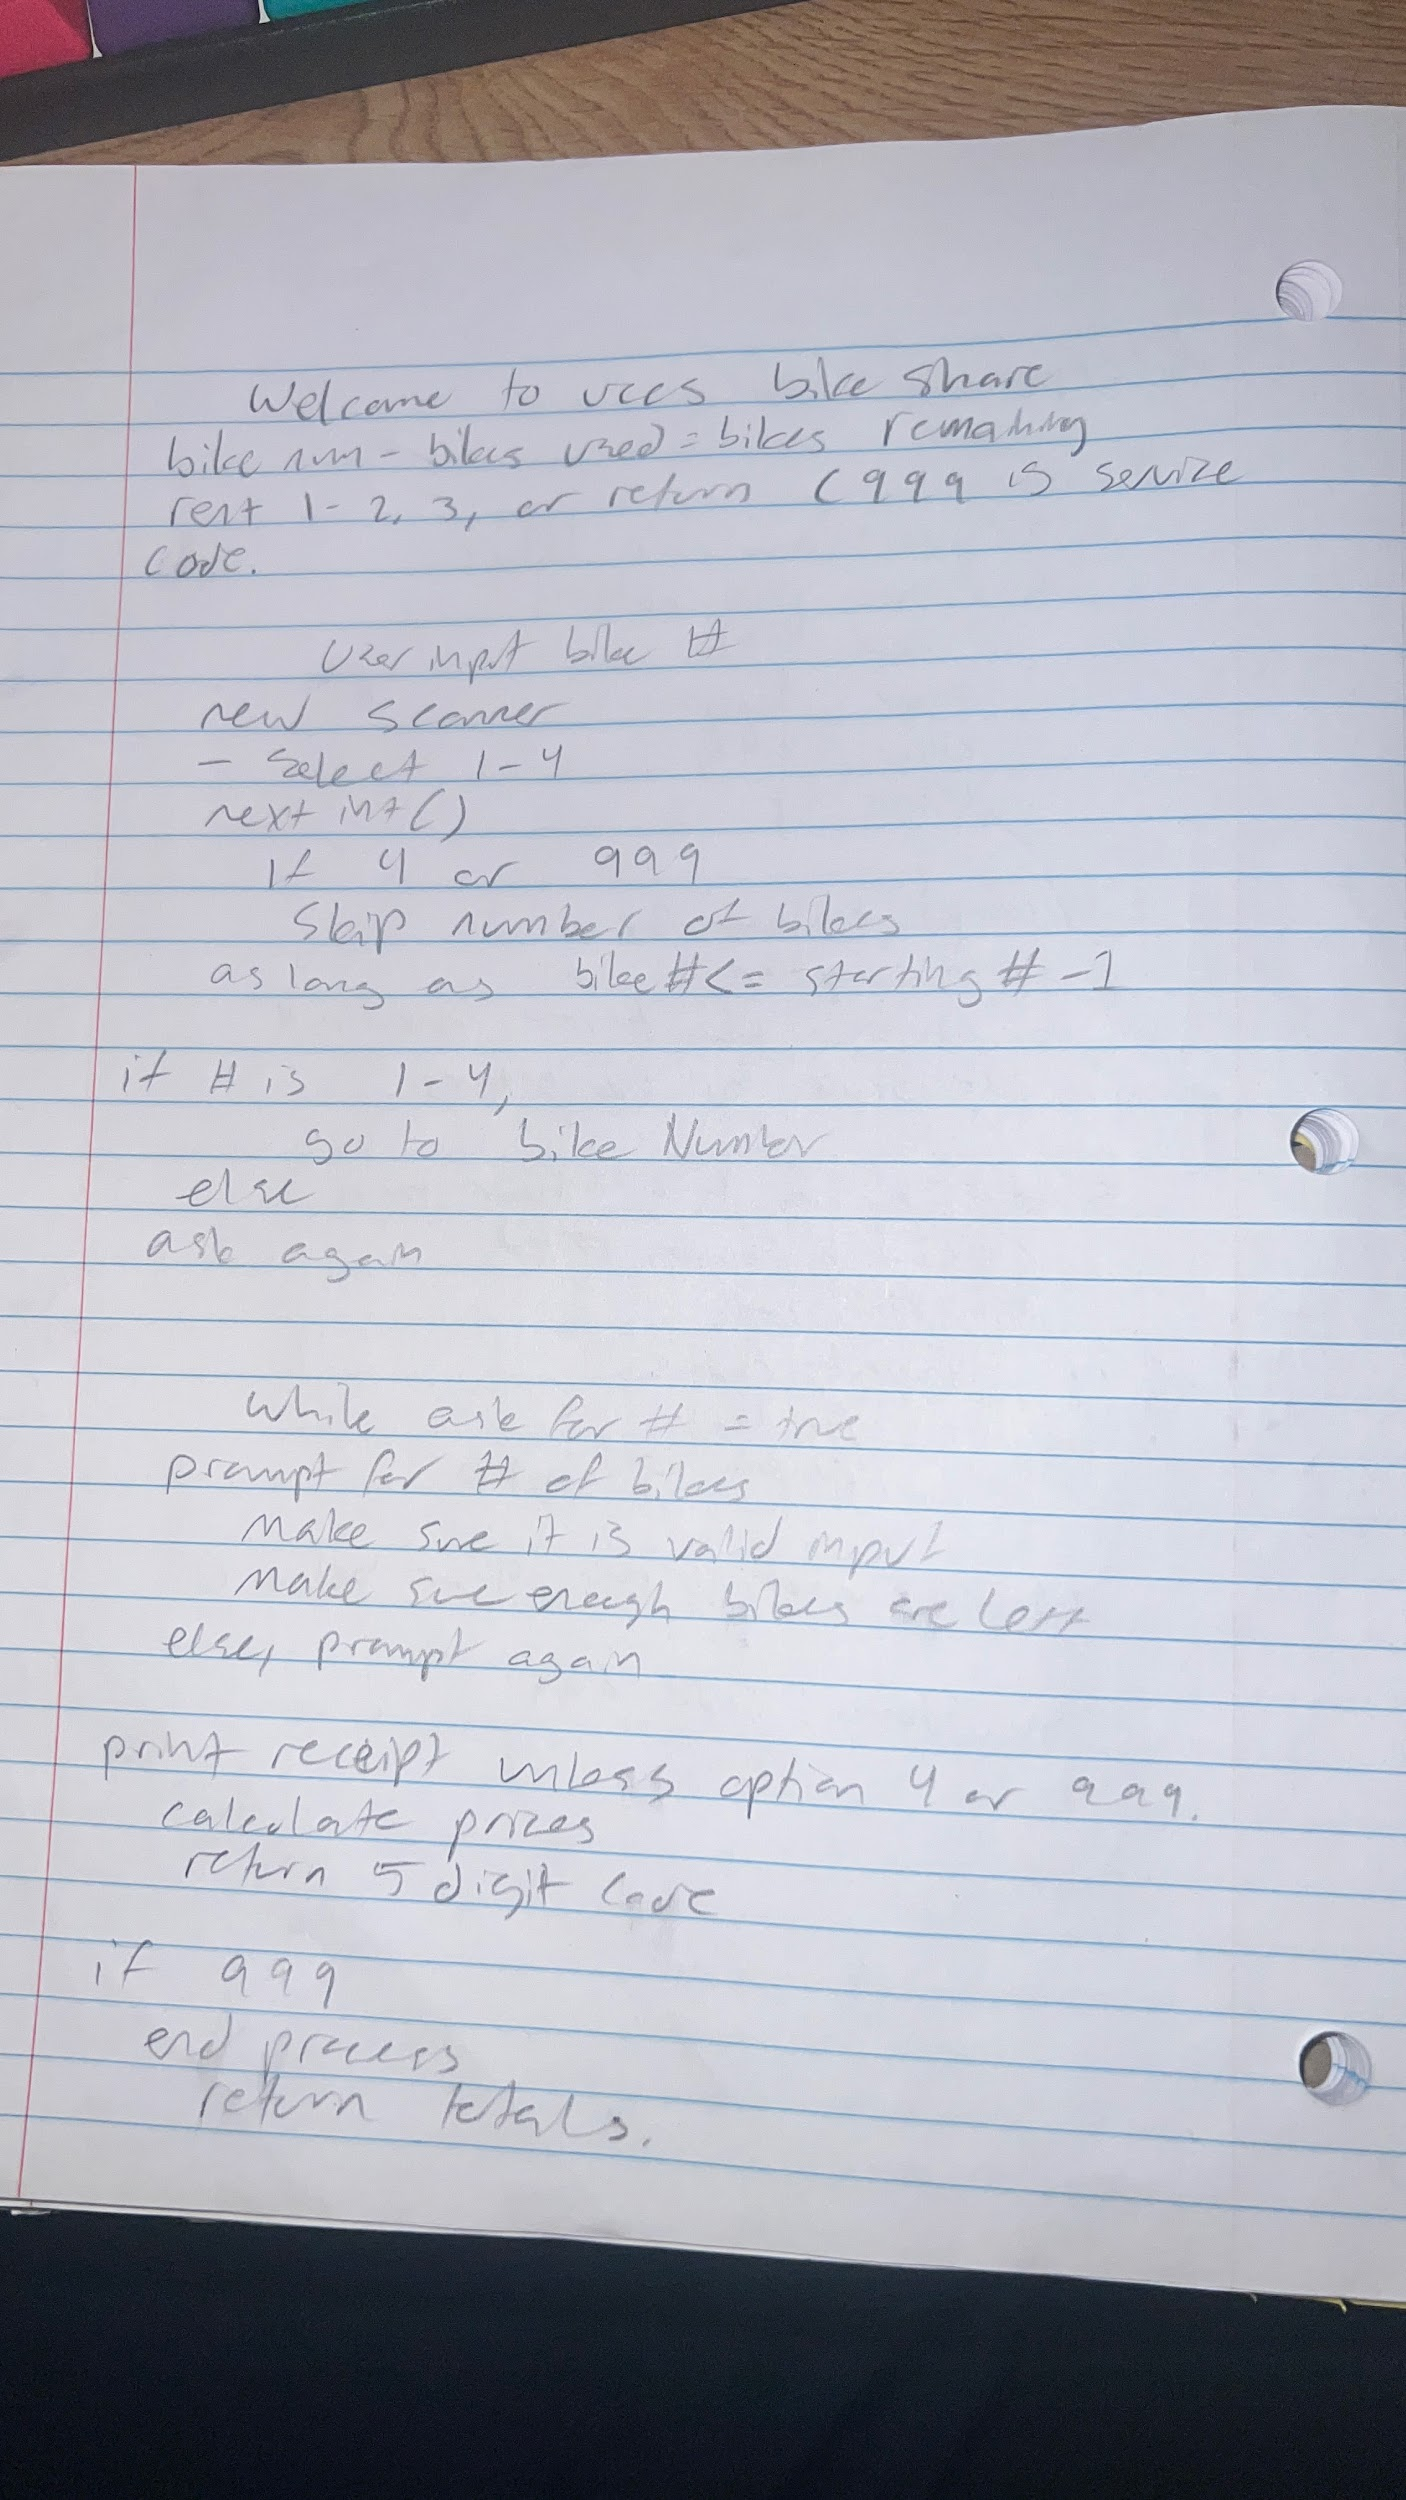 Welcome to uccs bike share
bike num - bikes used = bikes remaining
rent 1-2, 3, or return (999 is service
code.
User input bike #
new scanner
- Select 1-4
next int()
if 4 or 999
Skip number of bikes
as long as bike # <= starting # -1
if # is 1-4,
go to bike Number
else
ask again
while ask for # = true
prompt for # of bikes
make sure it is valid input
make sure enough bikes are left
else, prompt again
print receipt unless option 4 or 999.
calculate prices
return 5 digit code
if 999
end process
return totals.